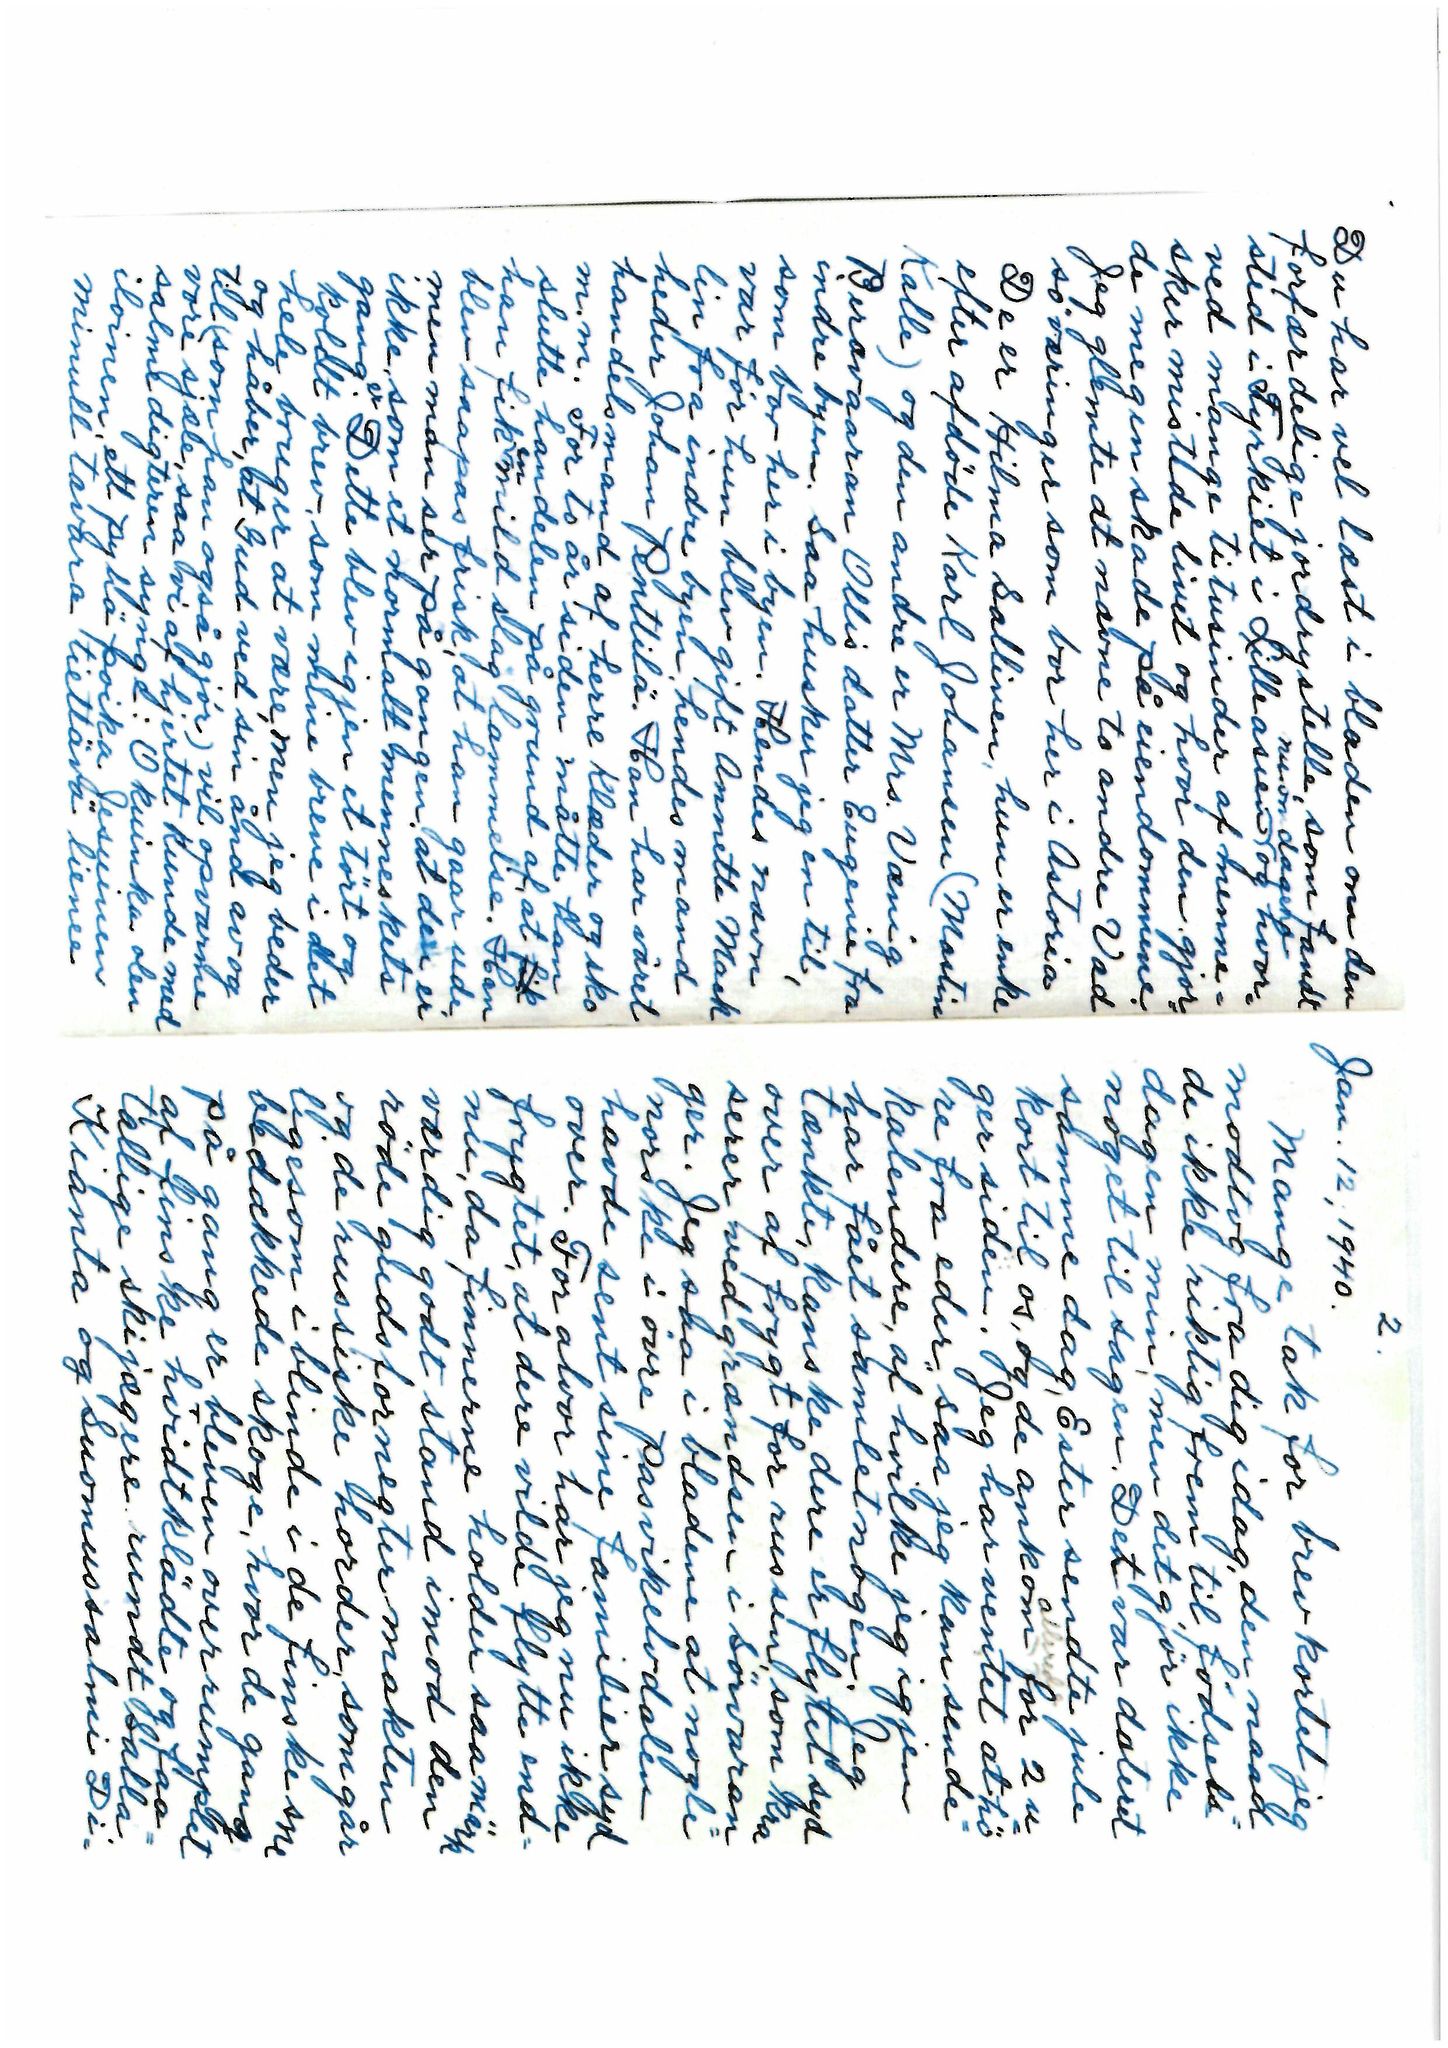 Du har vel læst i bladen om den
forfærdelige jordrystelse, som fandt
sted i Tyrkiet i Lilleasien, og hvor=
ved mange titusinder af menne=
sker mistede livet og hvor den gjor=
de megen skade på eiendommene.
Jeg glemte at nævne to andre Vad
söværinger som bor her i Astoria
De er Hilma Sallinen, hun er enke
efter afdöde Karl Johansen (Martin
Kalle) og den andre er Mrs. Vænig
Berävaaran Ollis datter Eugenie fra
indre byen. Saa husker jeg en til,
som bor her i byen. Hendes navn
var för hun blev gift Annette Mack
lin fra indre byen, hendes mand
heder Johan Penttilä. Han har våret
handelsmand af herre klæder og sko
m.m. For to år siden måtte han
slutte handelen på grund af, at
han fik en mild slag lammelse. Han
blev saapas frisk, at han gaar ude
men man ser på gangen, at den er
ikke, som et normalt menneskets
gang er. Dette blev igjen et tört og
koldt brev, som mine breve i det
hele bruger at være, men jeg beder
og håber, at Gud ved sin ånd av og
til (som han også gjör) vil opvarme
vore sjæle, saa vi af hjertet kunde med
salmedigteren synge: O kuinka olen
iloinen, ett pyhä poika Jesuinen
minull tavara tiettävä lienee
2.
Jan. 12, 1940.
Mange tak for brevkortet jeg
modtog fra dig idag, den naad
de ikke riktig frem til födsels=
dagen min, men det gjör ikke
noget til sagen. Det var dateret
samme dag, Ester sendte jule
kort til os, og de ankom for 2 u=
ger siden. Jeg har ventet at hö=
re fra eder, saa jeg kan sende
kalendere, af hvilke jeg igjen
har fået samlet nogen. Jeg
tænkte, kanske dere er flyttet syd
over af frygt for russen, som kra
serer ved grændsen i Sörvaran=
ger. Jeg saa i bladene at nogle
norske i övre Pasvikelvdalen
havde sent sine familier syd
over. For alvor har jeg nu ikke
frygtet, at dere vilde flytte end=
nu, da finnerne holder saa märk
værdig godt stand imod den
röde gudsfornegter makten
og de russiske horder, som går
ligesom i blinde i de finske sne
bedækkede skoge, hvor de gang
på gang er bleven overrumplet
af finske hvidtklädte og faa=
tallige skijægere rundt Salla
Kianta og Suomussalmi Di-